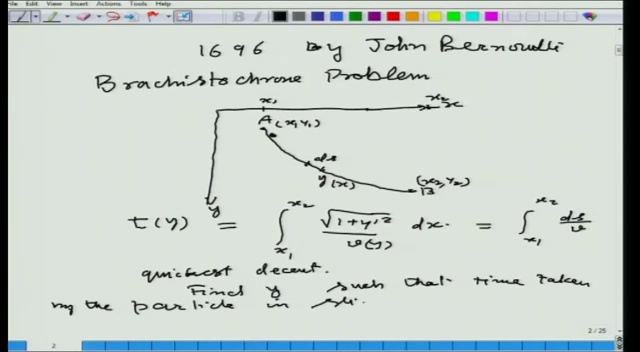 File Edit View Insert Actions Tools Help
1696 By John Bernoulli
Brachistochrone Problem
x₁ x₂ x
A (x₁, y₁)
ds
y(x) (x₂, y₂)
B
y
t(y) = ∫_{x₁}^{x₂} √(1+y'²) / v(y) dx = ∫_{x₁}^{x₂} ds/v
quickest decent.
Find y such that time taken
by the particle in
2 / 25
2